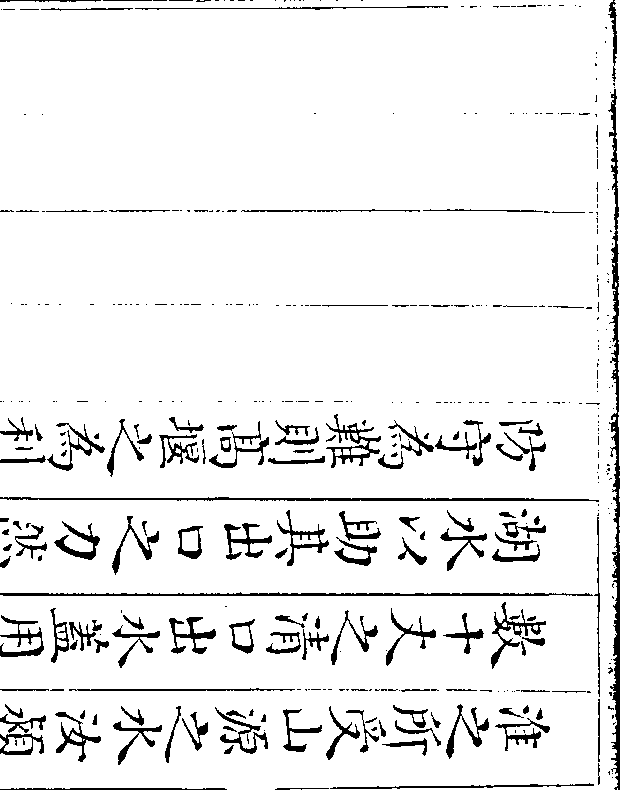 淮之所受山源之水汝潁
數十丈之清口出水蓋用
湖水以助其出口之力然
防守為難則高堰之為利